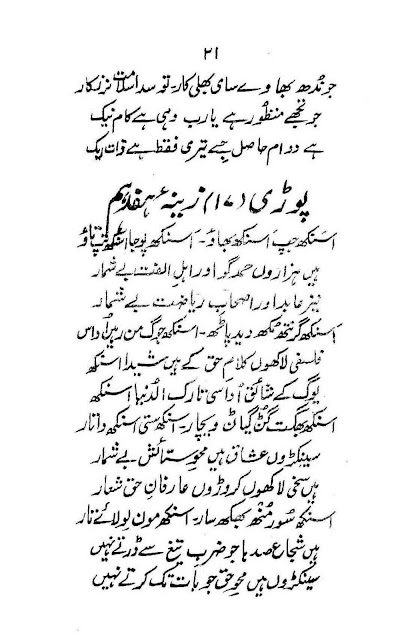 ۲۱
جو تُدھ بھاوے سای بھلی کار۔ تو سدا سلامت نرنکار
جو تجھے منظور ہے یارب وہی ہے کام نیک
ہے دوام حاصل جسے تیری فقط ہے ذات ایک
پوڑی (۱۷) زینہ ہفدہم
اسنکھ جپ اسنکھ بھاؤ۔ اسنکھ پوجا اسنکھ تپ تاؤ
ہیں ہزاروں حمد گو اور اہلِ الفت بے شمار
نیز عابد اور اصحابِ ریاضت بے شمار
اسنکھ گرنتھ مُکھ وید پاٹھ۔ اسنکھ جوگ من رہیں اُداس
فلسفی لاکھوں کلامِ حق کے ہیں شیدا اسنکھ
یوگ کے شائق اُداسی تارک الدنیا اسنکھ
اسنکھ بھگت گُن گیان ویچار۔ اسنکھ ستی اسنکھ داتار
سینکڑوں عشاق ہیں محوِ ستائش بے شمار
ہیں سخی لاکھوں کروڑوں عارفانِ حق شعار
اسنکھ سُور مُنھ بھکھ سار۔ اسنکھ مون لِو لائے تار
ہیں شجاع صدہا جو ضربِ تیغ سے ڈرتے نہیں
سینکڑوں ہیں محوِ حق جو بات تک کرتے نہیں